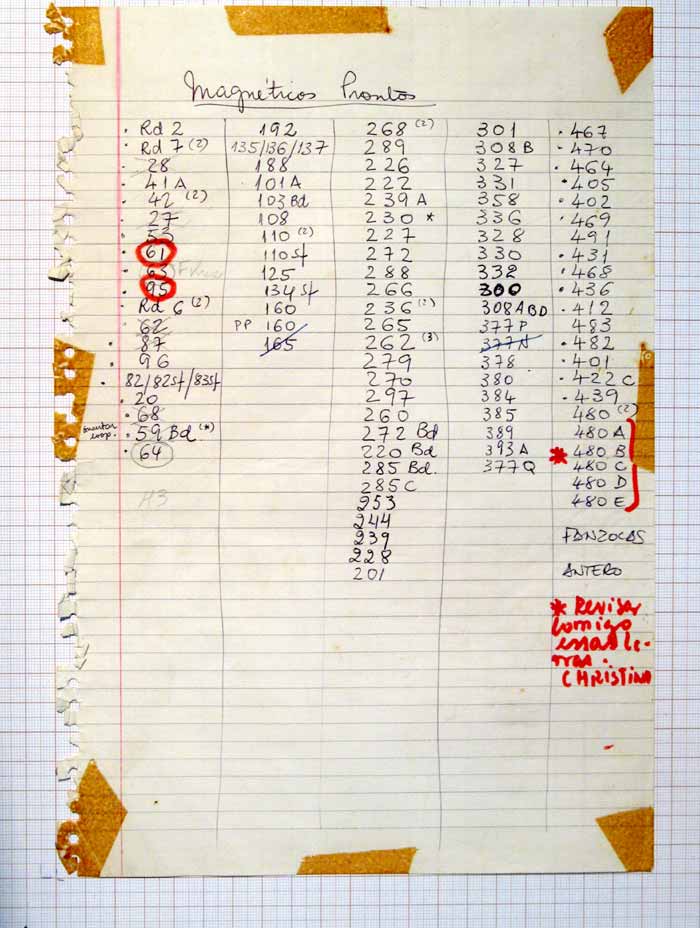 Magnéticos Prontos
· Rd 2
· Rd 7 (2)
· 28
· 41 A
· 42 (2)
· 27
· 53
· 61
· 63
· 95
· Rd 6 (2)
· 62
· 87
· 96
· 82/82sf/83sf
· 20
· 68
· 59 Bd (*)
· 64
H3
192
135/136/137
188
101 A
103 Bd
108
110 (2)
110 sf
125
134 sf
160
PP 160
165
268 (2)
289
226
222
239 A
230 *
227
272
288
266
236 (2)
265
262 (3)
279
270
297
260
272 Bd
220 Bd
285 Bd.
285 C
253
244
239
228
201
301
308 B
327
331
358
336
328
330
332
300
308 ABD
377 P
377 N
378
380
384
385
389
393 A
377 Q
· 467
· 470
· 464
· 405
· 402
· 469
491
· 431
· 468
· 436
· 412
· 483
· 482
· 401
· 422 C
· 439
480 (2)
480 A
* 480 B
480 C
480 D
480 E
FANZOCAS
ANTERO
* Revisar
comigo
essas le-
tras.
CHRISTINA